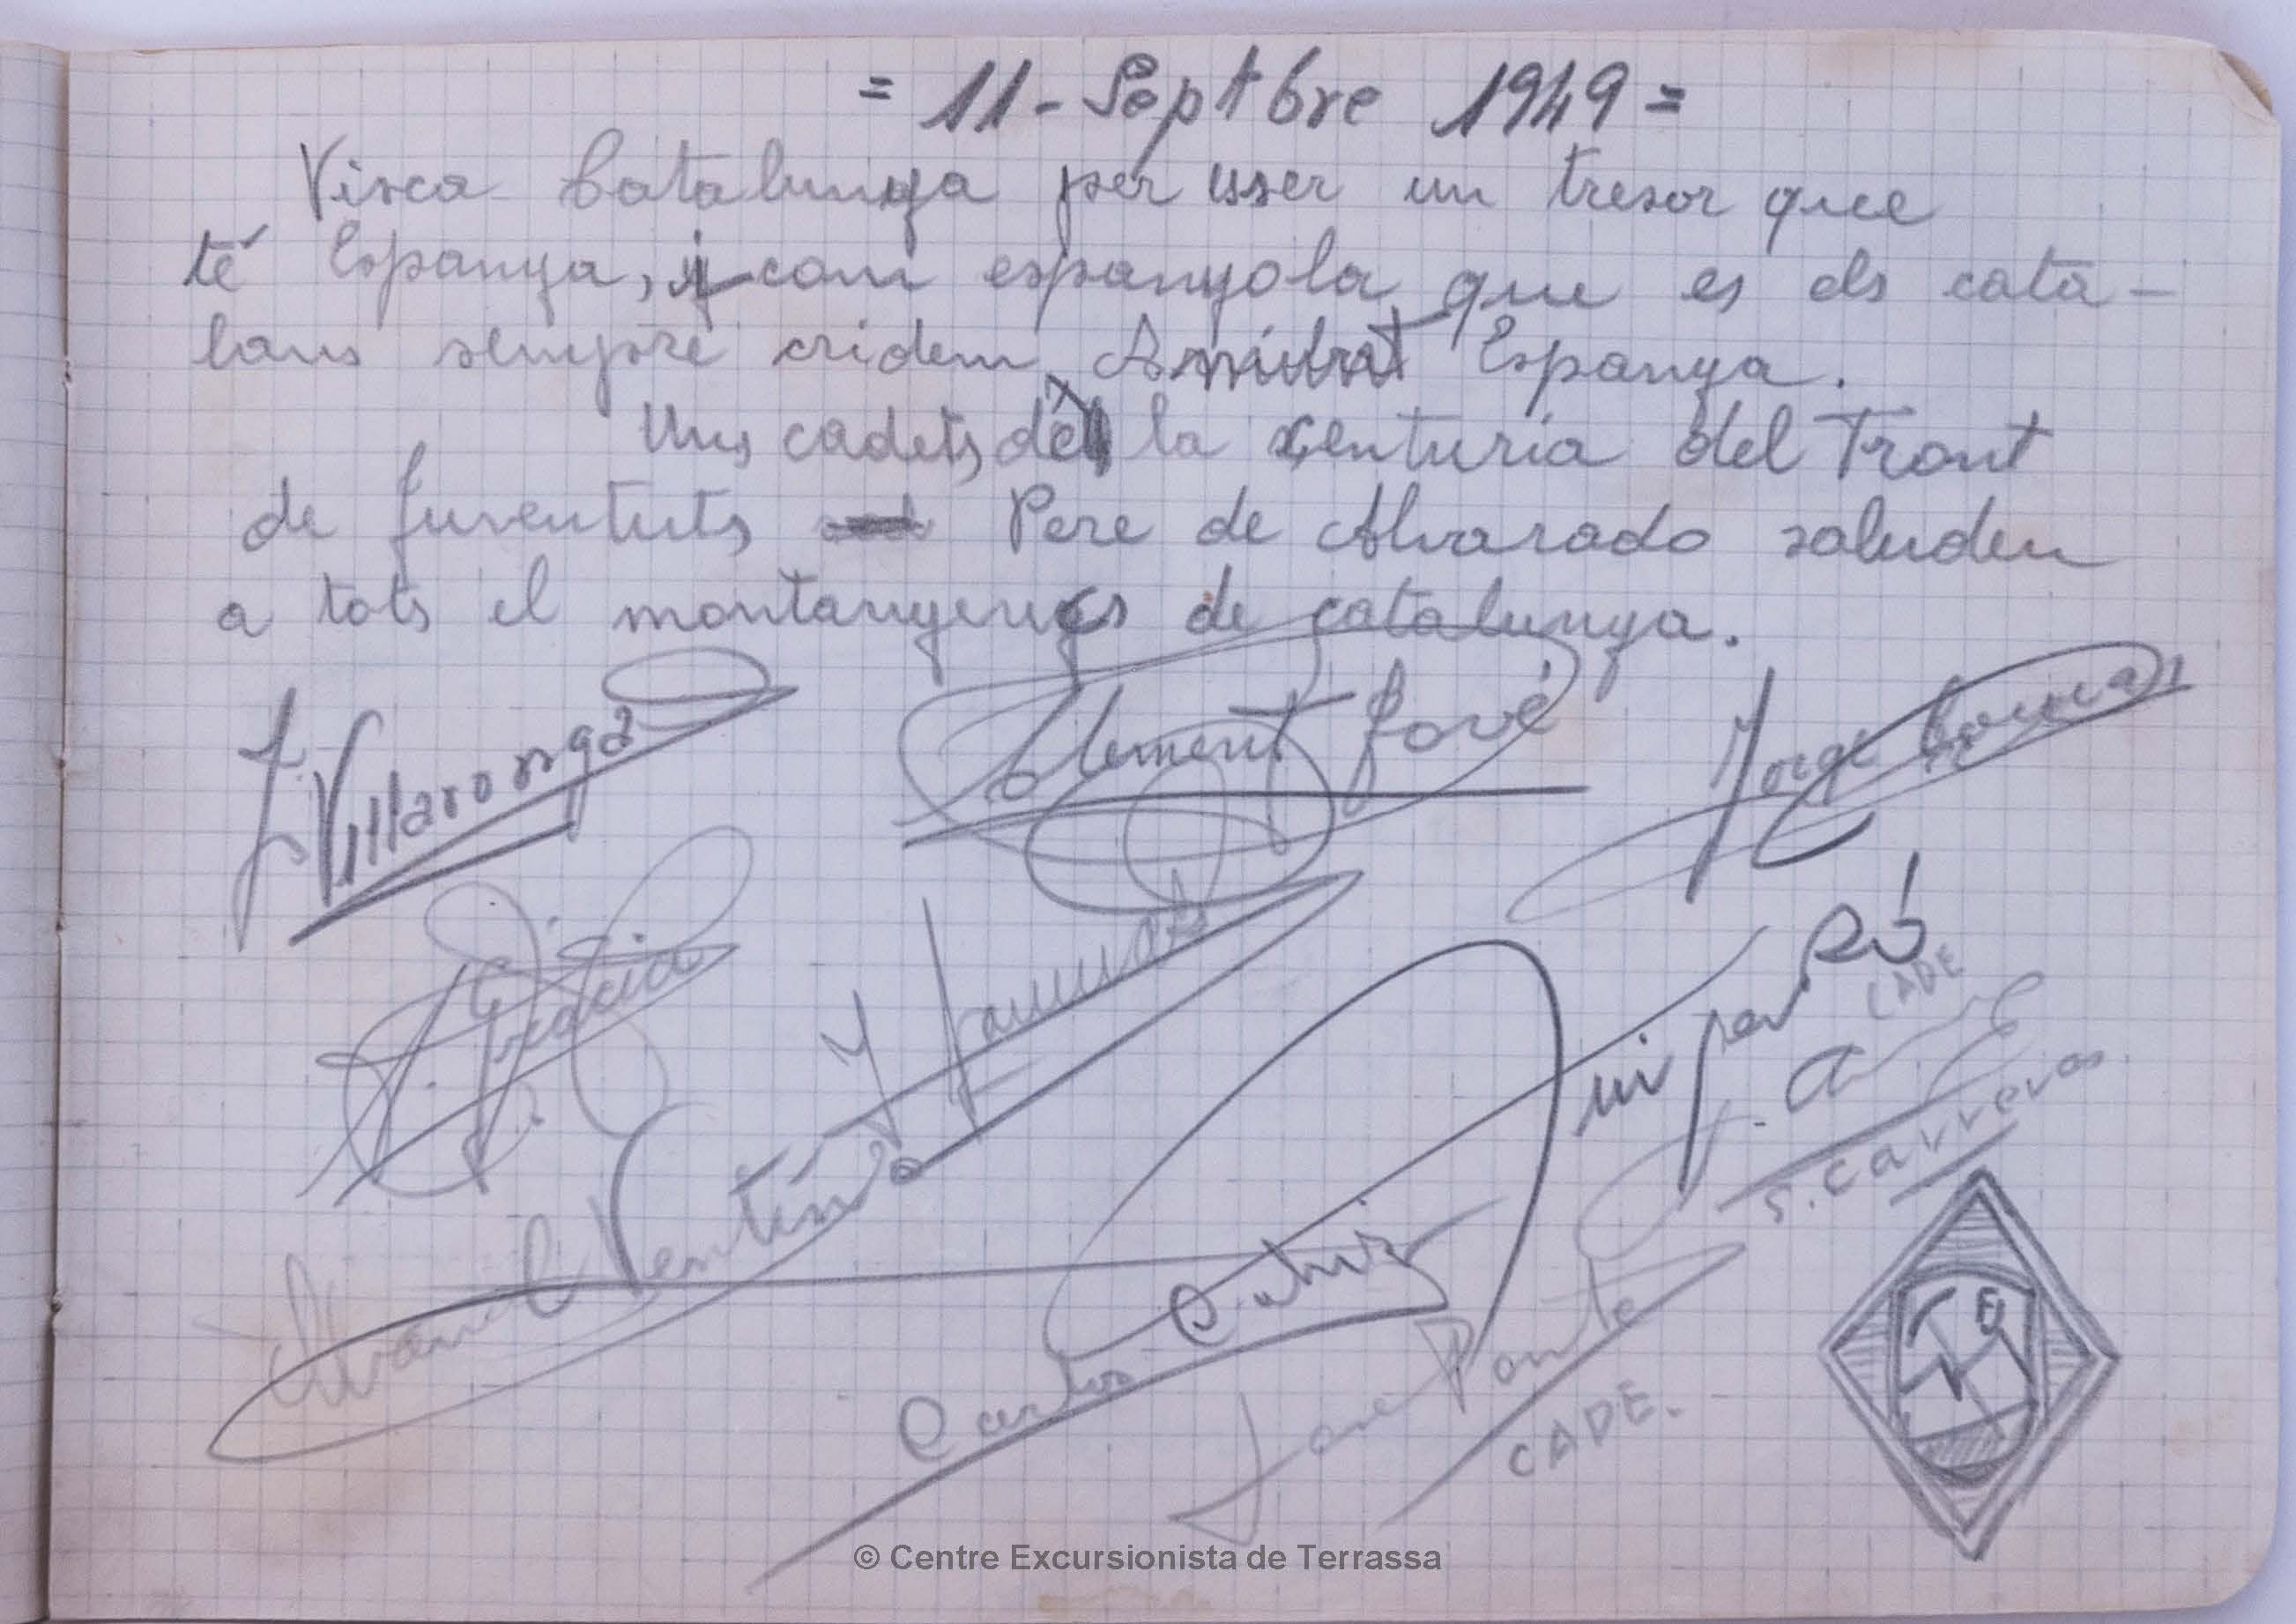 = 11 - Septbre 1949 =
Visca Catalunya per esser un tresor que
té Espanya, i com espanyola que es els cata-
lans sempre cridem Espanya.
Uns cadets de la centuria del Front
de Juventuts Pere de Alvarado saluden
a tots el montanyencs de catalunya.
J. Villaronga
Climent Jové
Jorge
J. Gracia
Manuel Ventín
mi par
CADE
S. Carreras
Carlos
Jose Ponte
CADE.
© Centre Excursionista de Terrassa